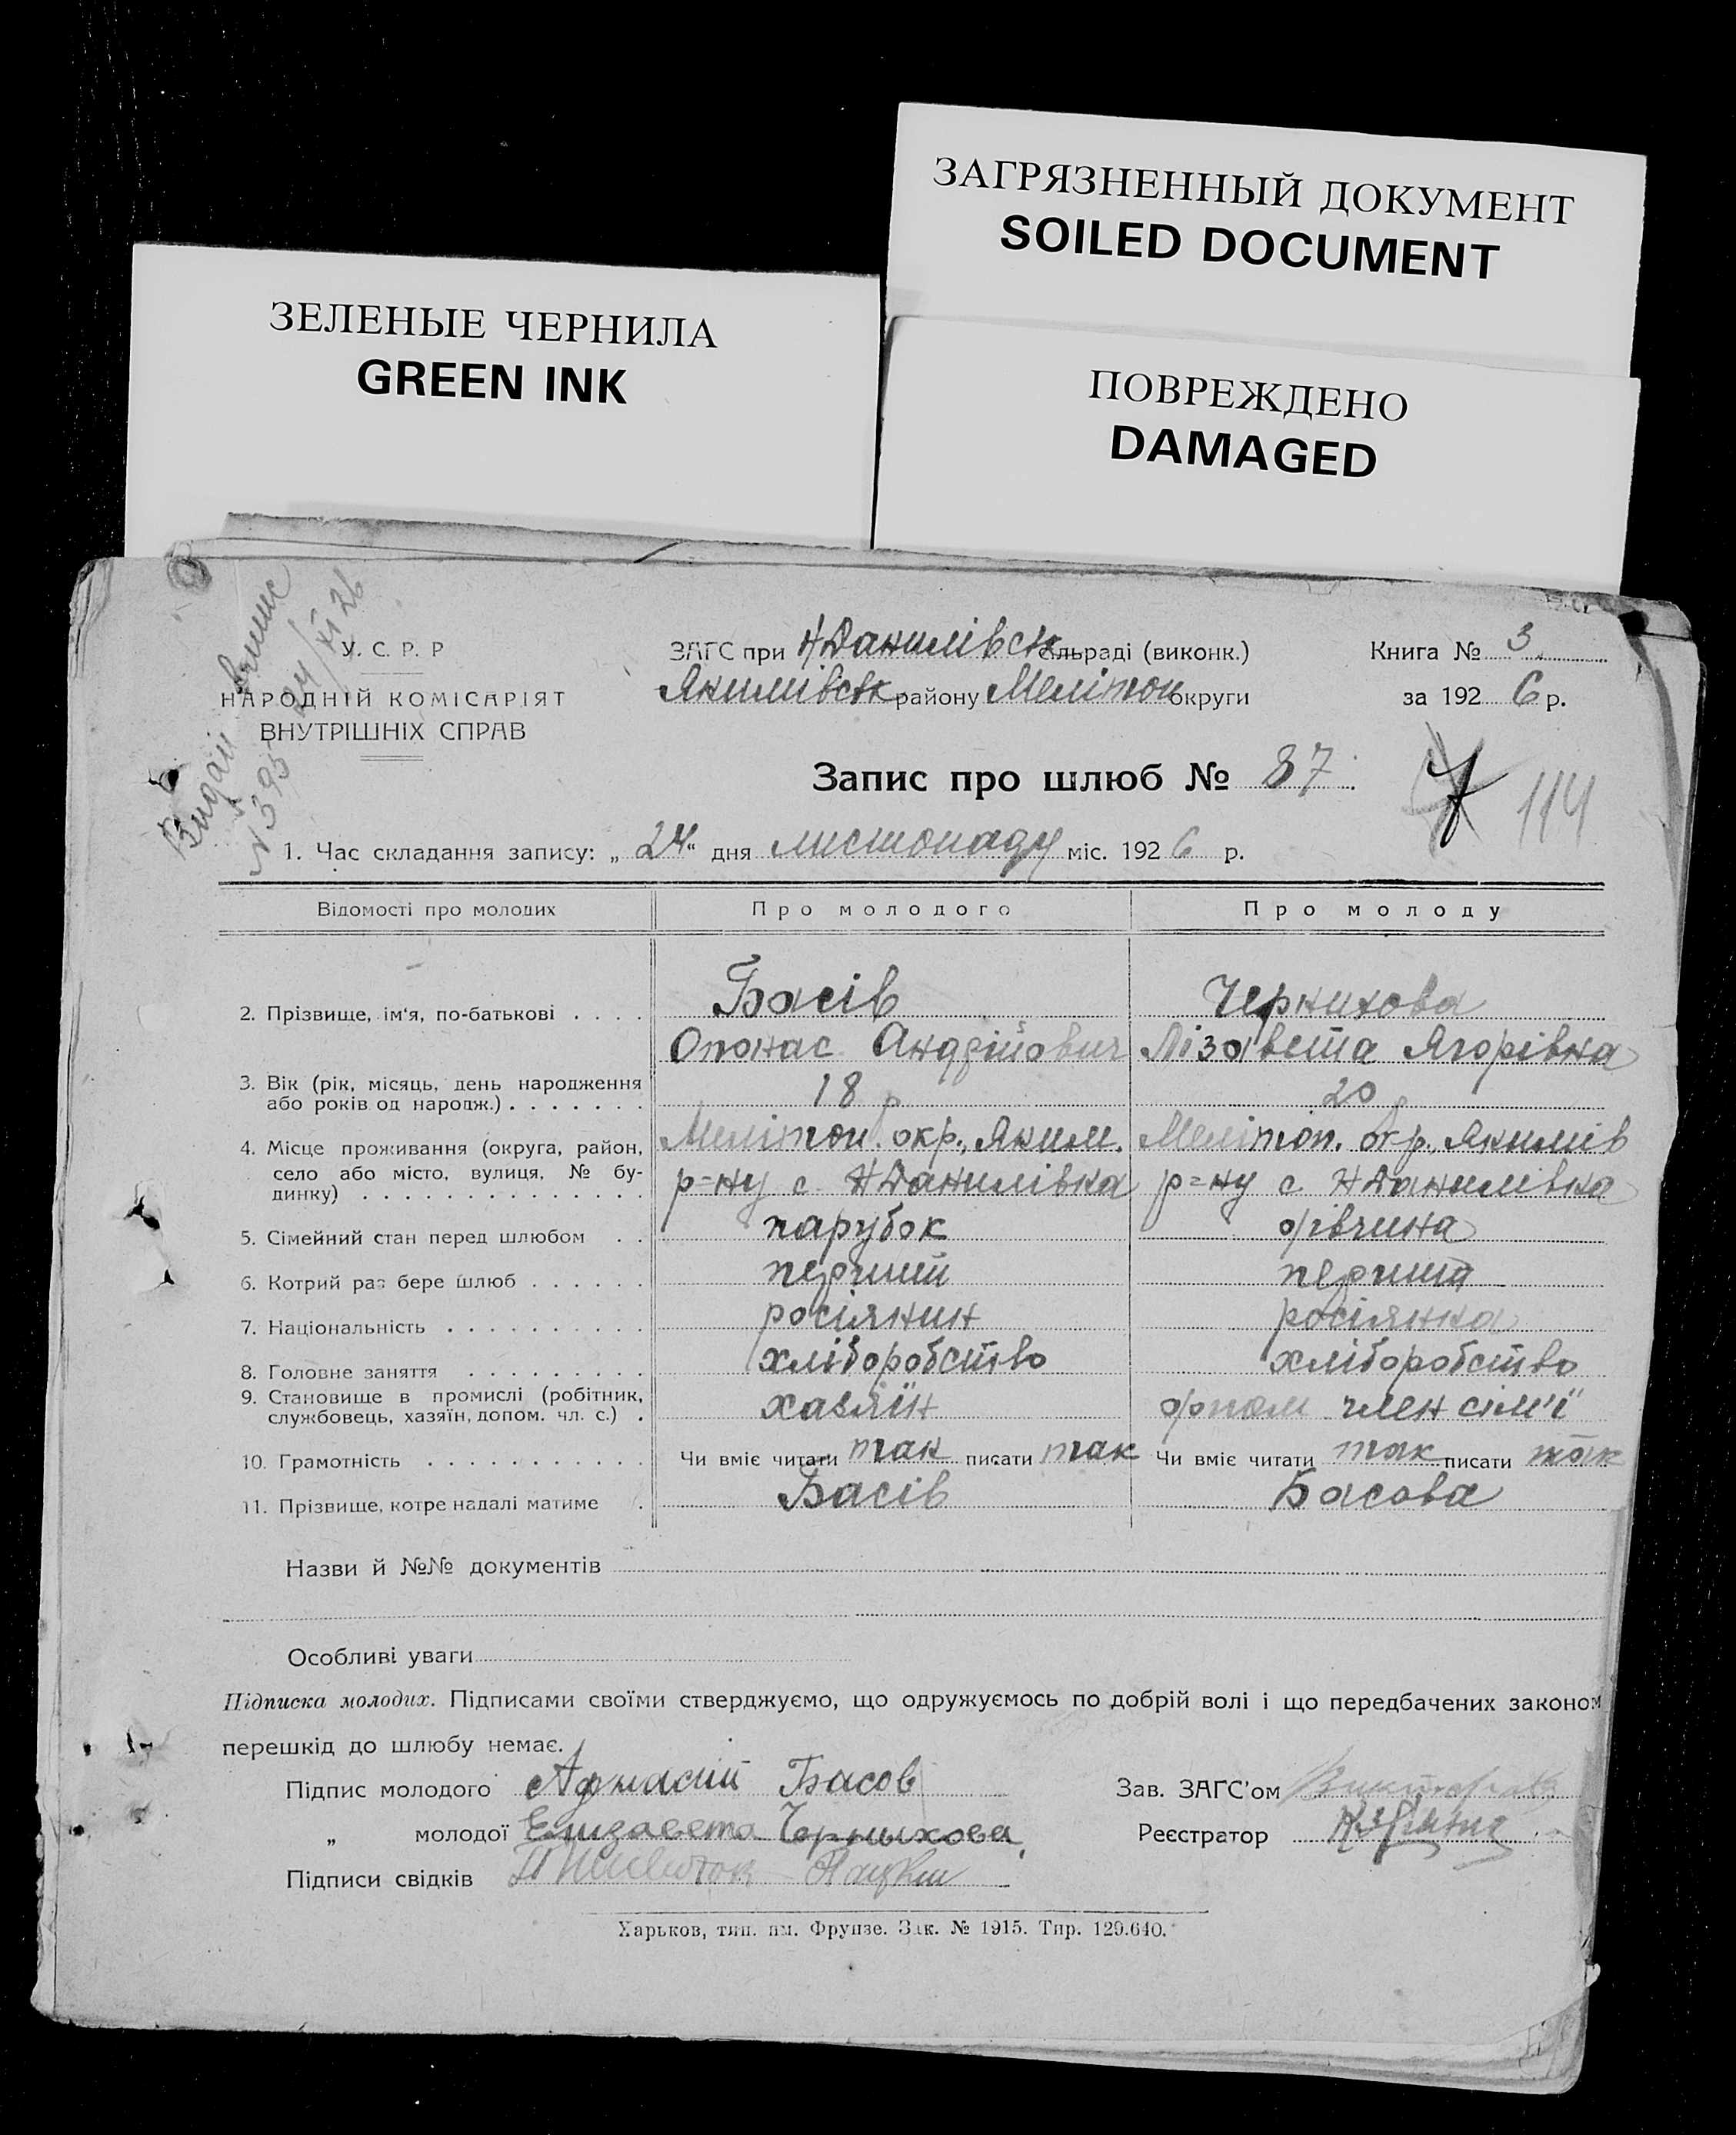 ЗАГРЯЗНЕННЫЙ ДОКУМЕНТ
SOILED DOCUMENT
ЗЕЛЕНЫЕ ЧЕРНИЛА
GREEN INK
ПОВРЕЖДЕНО
DAMAGED
Видан выпис
N 395 24/XI 26
У. С. Р. Р
НАРОДНІЙ КОМІСАРІЯТ
ВНУТРІШНІХ СПРАВ
ЗАГС при Н Данилівськ сільраді (виконк.)
Якимівськ району Меліток округи
Книга № 3
за 1926 р.
Запис про шлюб № 87
114
1. Час складання запису: „24“ дня листопаду міс. 1926 р.
Відомості про молодих Про молодого Про молоду
2. Прізвище, ім'я, по-батькові . . . . Басів Чернихова
Опонас Андрійович Лізавета Ягорівна
3. Вік (рік, місяць, день народження
або років од народж.) . . . . . . . 18 р 20 р
4. Місце проживання (округа, район, Мелітоп. окр., Яким. Мелітоп. окр., Якимів
село або місто, вулиця, № бу- р=ну с. Н Данилівка р=ну с. Н Данилівка
динку) . . . . . . . . . . . . . .
5. Сімейний стан перед шлюбом . . парубок дівчина
6. Котрий раз бере шлюб . . . . . . перший перший
7. Національність . . . . . . . . . . росіянин росіянка
8. Головне заняття . . . . . . . . . хліборобство хліборобство
9. Становище в промислі (робітник,
службовець, хазяїн, допом. чл. с.) . хазяїн допом член сім'ї
10. Грамотність . . . . . . . . . . . Чи вміє читати так писати так Чи вміє читати так писати так
11. Прізвище, котре надалі матиме . Басів Басова
Назви й №№ документів
Особливі уваги
Підписка молодих. Підписами своїми стверджуємо, що одружуємось по добрій волі і що передбачених законом
перешкід до шлюбу немає.
Підпис молодого Афнасий Басов
„ молодої Елизавета Черныхова
Підписи свідків
Зав. ЗАГС'ом
Реєстратор
Харьков, тип. им. Фрунзе. Зак. № 1915. Тир. 129.640.